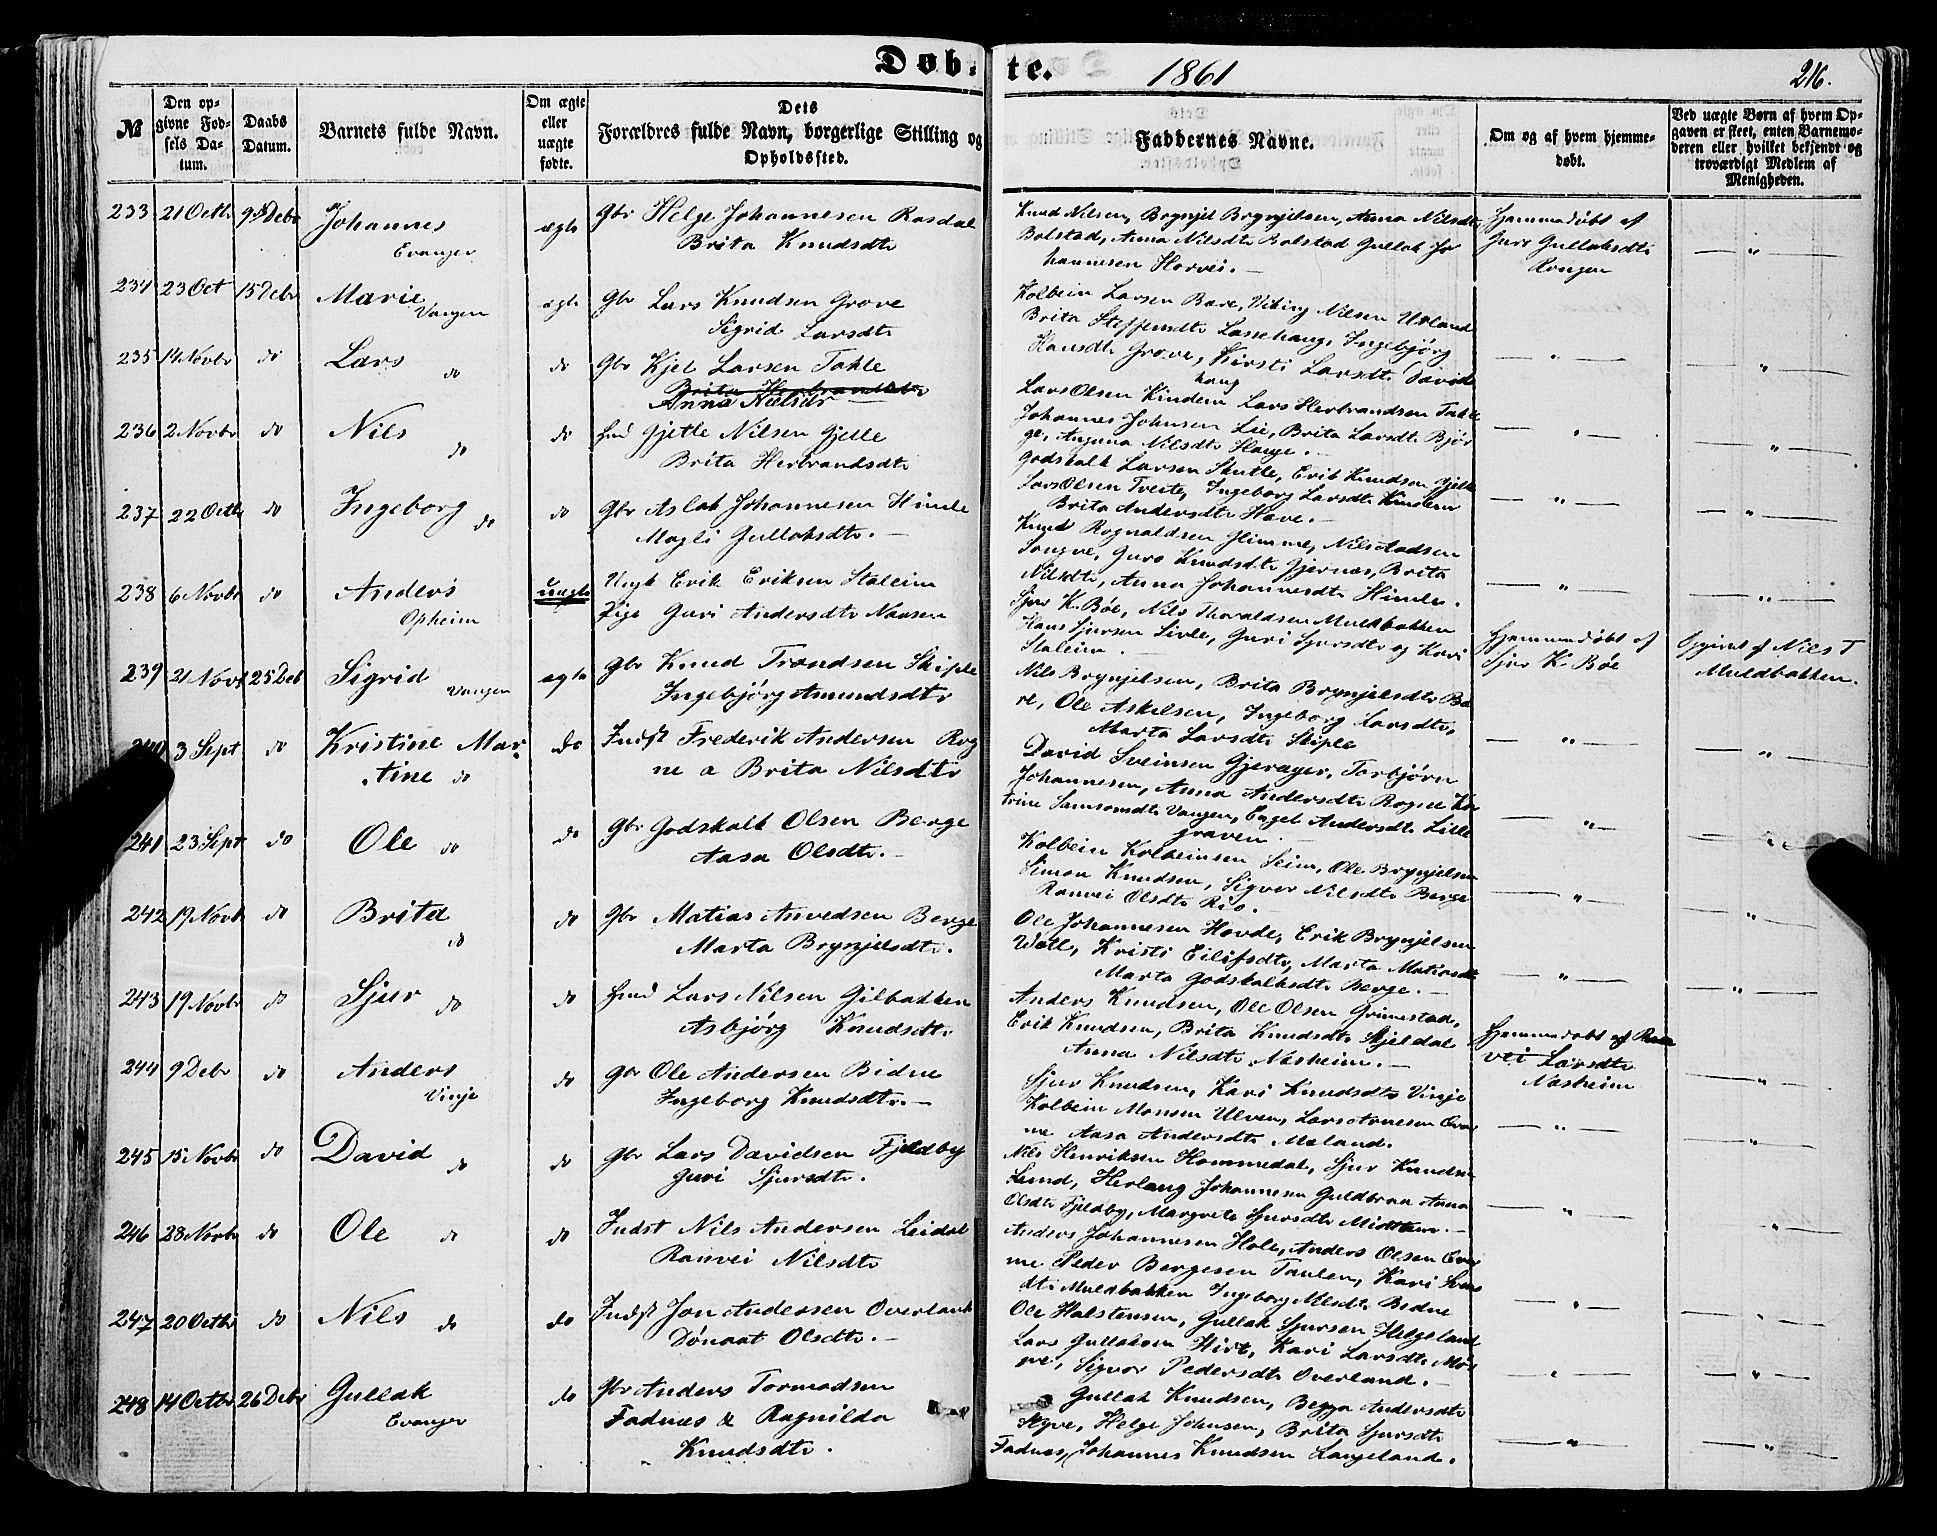 Døbte. 1861 216.
№
Den opgivne Fødsels Datum.
Daabs Datum.
Barnets fulde Navn.
Om ægte eller uægte fødte.
Dets Forældres fulde Navn, borgerlige Stilling og Opholdssted.
Faddernes Navne.
Om og af hvem hjemmedøbt.
Ved uægte Børn af hvem Opgaven er skeet, enten Barnemoderen eller hvilket bekjendt og troværdigt Medlem af Menigheden.
233 21 Octb 9de Debr Johannes ægte Gbr Helge Johannesen Rasdal
Evanger Brita Knudsdtr
Knud Nilsen, Brynjel Brynjelsen, Anna Nilsdtr
Bolstad, Anna Nilsdtr Bolstad Gullak Jo
hannesen Horvei.
Hjemmedøbt af
Guro Gullaksdtr
234 23 Oct 15 Debr Marie ægte Gbr Lars Knudsen Grove
Vangen Sigrid Larsdtr
Kolbein Larsen Bære, Viking Nilsen Urland
Brita Steffensdtr Lassehaug, Ingebjörg
Hansdtr Grove, Kirsti Larsdtr Davids
haug
235 14 Novbr do Lars do do Gbr Kjel Larsen Takle
Brita Herbrandsdtr
Anna Nielsdr
Lars Olsen Kindem Lars Herbrandsen Takle
Johannes Johnsen Lie, Brita Larsdtr Bjør
ge, Anguna Nilsdtr Hauge.
236 2 Novbr do Nils do do Hmd Gjetle Nilsen Gjelle
Brita Herbrandsdtr
Godskalk Larsen Skutle, Erik Knudsen Gjelle
Lars Olsen Treite, Ingeborg Larsdtr Kindem
Brita Andersdtr Hove.
237 22 Octb do Ingeborg do do Gbr Aslak Johannesen Himle
Magli Gullaksdtr.
Knud Rognaldsen Glimme, Nils Aadsen
Songve, Guro Knudsdtr Gjernæs, Brita
Nilsdtr, Anna Johannesdtr Himle.
238 6 Novbr do Anders uægte Ungk Erik Eriksen Staleim
Opheim Pige Guri Andersdtr Naasen
Sjur K. Bøe, Nils Thoraldsen Muldbakken
Hans Sjursen Sivle, Guri Sjursdtr og Kari
Staleim.
Hjemmedøbt af
Sjur K. Bøe
Opgivet af Nils T
Muldbakken.
239 21 Novb 25 Deb Sigrid ægte Gbr Knud Trondsen Skiple
Vangen Ingebjörg Amundsdtr
Nils Brynjelsen, Brita Brynjelsdtr Bæ
re, Ole Askelsen, Ingeborg Larsdtr,
Marta Larsdtr Skiple
240 3 Sept do Kristine Mar do Indst Frederik Andersen Rog
tine do ne a Brita Nilsdtr
David Sveinsen Gjerager, Torbjörn
Johannesen, Anna Andersdtr Rogne Ka
trine Samsonsdtr Vangen, Engel Andersdtr Lille
graven
241 23 Sept do Ole do do Gbr Godskalk Olsen Berge
Aasa Olsdtr.
Kolbein Kolbeinsen Seim, Ole Brynjelsen
Simon Knudsen, Sigvor Nilsdtr Berge
Ranvei Olsdtr Rio.
242 19 Novb do Brita do do Gbr Matias Anvedsen Berge
Marta Brynjelsdtr.
Ole Johannesen Hovde, Erik Brynjelsen
Wæte, Kristi Eilifsdtr, Marta Matiasdt
Marta Godskalksdtr Berge.
243 19 Novbr do Sjur do do Hmd Lars Nilsen Gilbakken
Asbjörg Knudsdtr
Anders Knudsen, Ole Olsen Grimestad,
Erik Knudsen, Brita Knudsdtr Skjeldal
Anna Nilsdtr Næsheim.
Hjemmedøbt af Ran
vei Larsdtr
Næsheim
244 9 Debr do Anders do Gbr Ole Andersen Bidne
Vinje Ingeborg Knudsdtr.
Sjur Knudsen, Kari Knudsdtr Vinje
Kolbein Monsen Ulven, Lars Arnesen Ever
me Aasa Andersdtr Mæland.
245 15 Novbr do David do do Gbr Lars Davidsen Fjeldby
Guri Sjursdtr.
Nils Henriksen Hommedal, Sjur Knudsen
Lund, Herlaug Johannesen Guldbraa Anna
Olsdtr Fjeldby, Margrete Sjursdtr Midttun.
246 28 Novbr do Ole do do Indst Nils Andersen Leidal
Ranvei Nilsdtr
Anders Johannesen Hole, Anders Olsen Ever
me Peder Bergesen Taulen, Kari Svens
dtr Muldbakken Ingeborg Nilsdtr Bidne
247 20 Octbr do Nils do do Indst Jon Andersen Overland
Dönaat Olsdtr.
Ole Halstensen, Gullak Sjursen Helgeland
Lars Gullaksen Hirt, Kari Larsdtr Mör
ne, Sigvor Pedersdtr Overland.
248 14 Octbr 26 Debr Gullak do Gbr Anders Tormodsen
Evanger Fadnæs & Ragnilda
Knudsdtr.
Gullak Knudsen, Begga Andersdtr
Styve, Helge Johnsen, Brita Sjursdtr
Fadnæs, Johannes Knudsen Langeland.